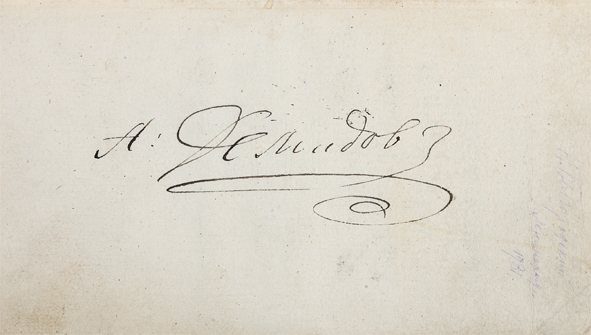 А: Демидовъ